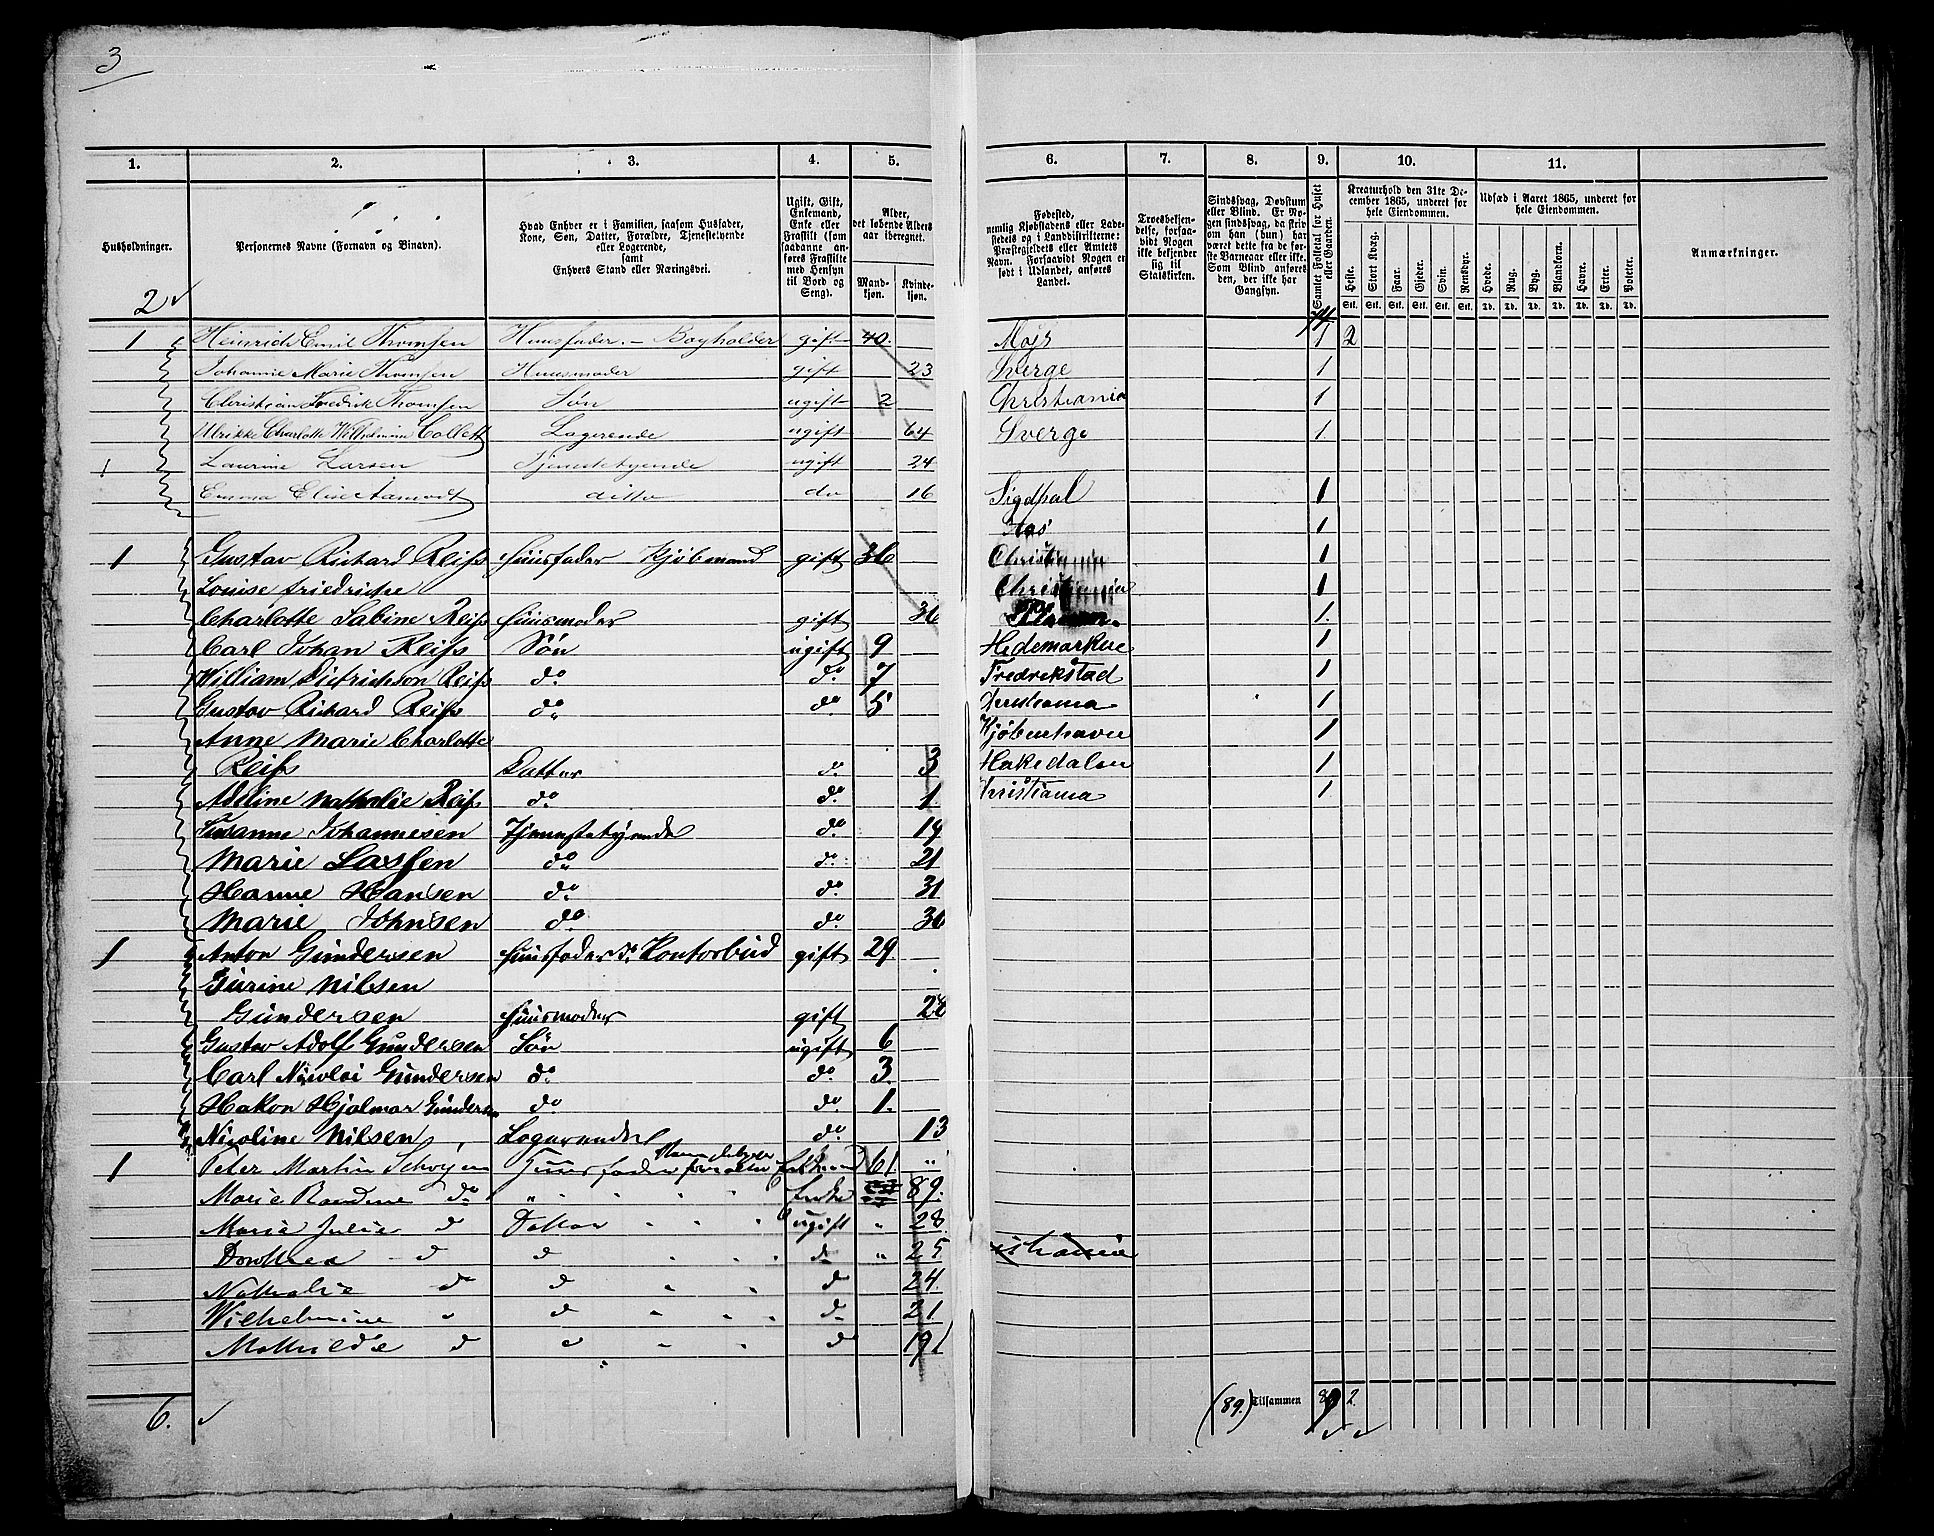 3
1. 2. 3. 4. 5. 6. 7. 8. 9. 10. 11.
Husholdninger.
Personernes Navne (Fornavn og Binavn).
Hvad Enhver er i Familien, saasom Husfader,
Kone, Søn, Datter, Forældre, Tjenestetyende
eller Logerende,
samt
Enhvers Stand eller Næringsvei.
Ugift, Gift,
Enkemand,
Enke eller
Fraskilt (som
saadanne an-
føres Fraskilte
med Hensyn
til Bord og
Seng).
Alder,
det løbende Alders-
aar iberegnet.
Mand-
kjøn.
Kvinde-
kjøn.
Fødested,
nemlig Kjøbstadens eller Lade-
stedets og i Landdistrikterne:
Præstegjeldets eller Amtets
Navn. Forsaavidt Nogen er
født i Udlandet, anføres
Landet.
Troesbekjen-
delse, forsaa-
vidt Nogen
ikke bekjender
sig til
Statskirken.
Sindssvag, Døvstum
eller Blind. Er No-
gen sindssvag, da skriv
om han (hun) har
været dette fra de før-
ste Barneaar eller ikke.
Som Blind anføres
den, der ikke har
Gangsyn.
Samlet Folketal for Huset
eller Gaarden.
Kreaturhold den 31te De-
cember 1865, underet for
hele Eiendommen.
Heste. Stort Kvæg. Faar. Gjeder. Svin. Rensdyr.
Stk. Stk. Stk. Stk. Stk. Stk.
Udsæd i Aaret 1865, underet for
hele Eiendommen.
Hvede. Rug. Byg. Blandkorn. Havre. Erter. Poteter.
Td. Td. Td. Td. Td. Td. Td.
Anmærkninger.
2
1 Heinrich Emil Thomsen Huusfader. - Bogholder gift 40. Moss 1 2
Johanne Marie Thomsen Huusmoder gift 23 Sverge 1
Christian Fredrik Thomsen Søn ugift 2 Christiania 1
Ulrikke Charlotte Wilhelmine Collett Logerende ugift 64 Sverge 1.
1 Laurine Larsen Tjenestetyende ugift 24
Emma Elise Aamodt ditto do 16 Sigdhal 1
Aas 1
1 Gustav Richard Reiss Huusfader Kjøbmand gift 36 Christiania 1
Louise Friedriche Christiania 1
Charlotte Sabine Reiss Huusmoder gift 36 1.
Carl Johan Reiss Søn ugift 9 Hedemarken 1
William Dietrichson Reiss do do 7 Fredrekstad 1
Gustav Richard Reiss do do 5 Christiania 1
Anne Marie Charlotte Kjøbenhavn 1
Reiss Datter do 3 Hakedalen 1
Adeline Nathalie Reiss do do 1 Christiania 1
Susanne Johannesen Tjenestetyende do 19
Marie Lassen do do 21
Hanne Hansen do do 31
Marie Johnsen do do 30
1 Anton Gundersen Huusfader Kontorbud gift 29.
Jurine Nilsen
Gundersen Huusmoder gift 28
Gustav Adolf Gundersen Søn ugift 6
Carl Nicolai Gundersen do do 3.
Hakon Hjalmar Gundersen do do 1.
Nicoline Nilsen, Logerende do 13
1 Peter Martin Schøyen Huusfader Enkemand 61 "
Marie do " Enke 89.
Maria Julie d Datter ugift " 28.
Dorothea d d d " 25 istiania
Nathalie d d d 24.
Wilhelmine d d 21
Mathilde d d 19
6. (89.) Tilsammen 89 2.